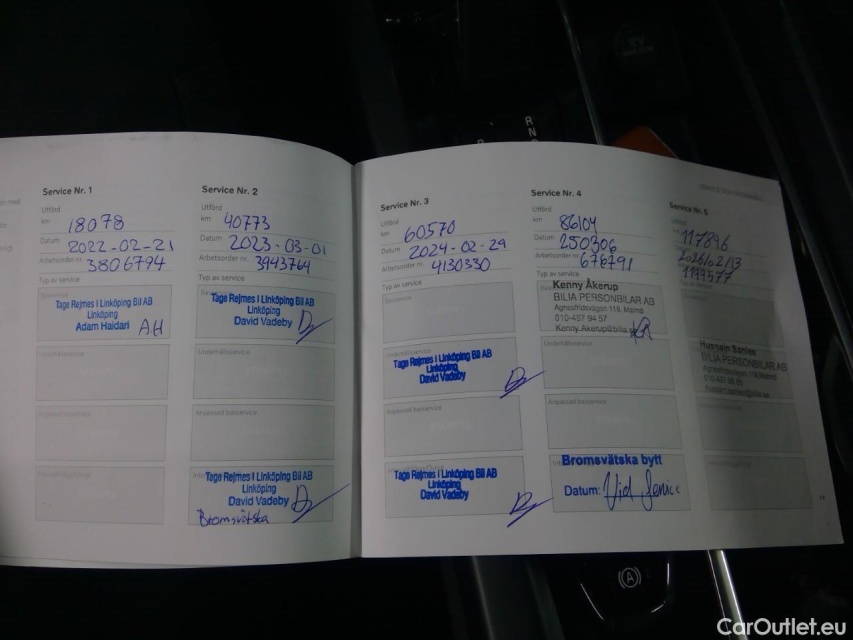 Service Nr. 1
Utförd
km 18078
Datum 2022-02-21
Arbetsorder nr. 3806794
Typ av service
Tage Rejmes i Linköping Bil AB
Linköping
Adam Haidari AH
Service Nr. 2
Utförd
km 40773
Datum 2023-03-01
Arbetsorder nr. 3943764
Typ av service
Tage Rejmes i Linköping Bil AB
Linköping
David Vadeby
Underhållsservice
Anpassad basservice
Tage Rejmes i Linköping Bil AB
Linköping
David Vadeby
Bromsvätska
Service Nr. 3
Utförd
km 60570
Datum 2024-02-29
Arbetsorder nr. 4130330
Typ av service
Tage Rejmes i Linköping Bil AB
Linköping
David Vadeby
Anpassad basservice
Tage Rejmes i Linköping Bil AB
Linköping
David Vadeby
Service Nr. 4
Utförd
km 86104
Datum 250306
Arbetsorder nr. 676791
Typ av service
Kenny Åkerup
BILIA PERSONBILAR AB
Agnesfridsvägen 119, Malmö
010-497 94 57
Kenny.Akerup@bilia.
Underhållsservice
Anpassad basservice
Bromsvätska bytt
Datum: Vid Service
Service Nr. 5
117896
2026/02/13
1199577
BILIA PERSONBILAR AB
Agnesfridsvägen 119, Malmö
R
N
A
CarOutlet.eu